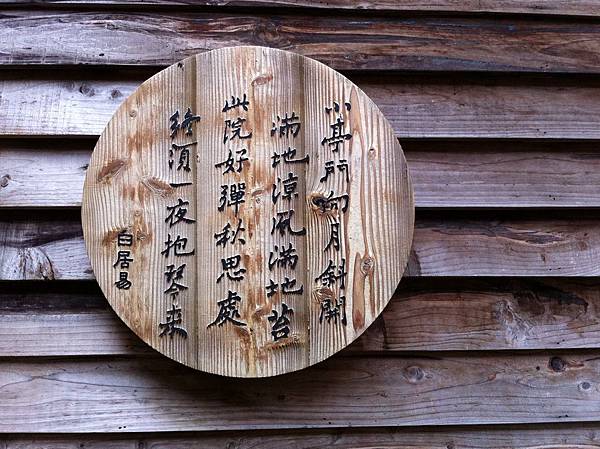 小亭門向月斜開
滿地涼風滿地苔
此院好彈秋思處
終須一夜抱琴來
白居易